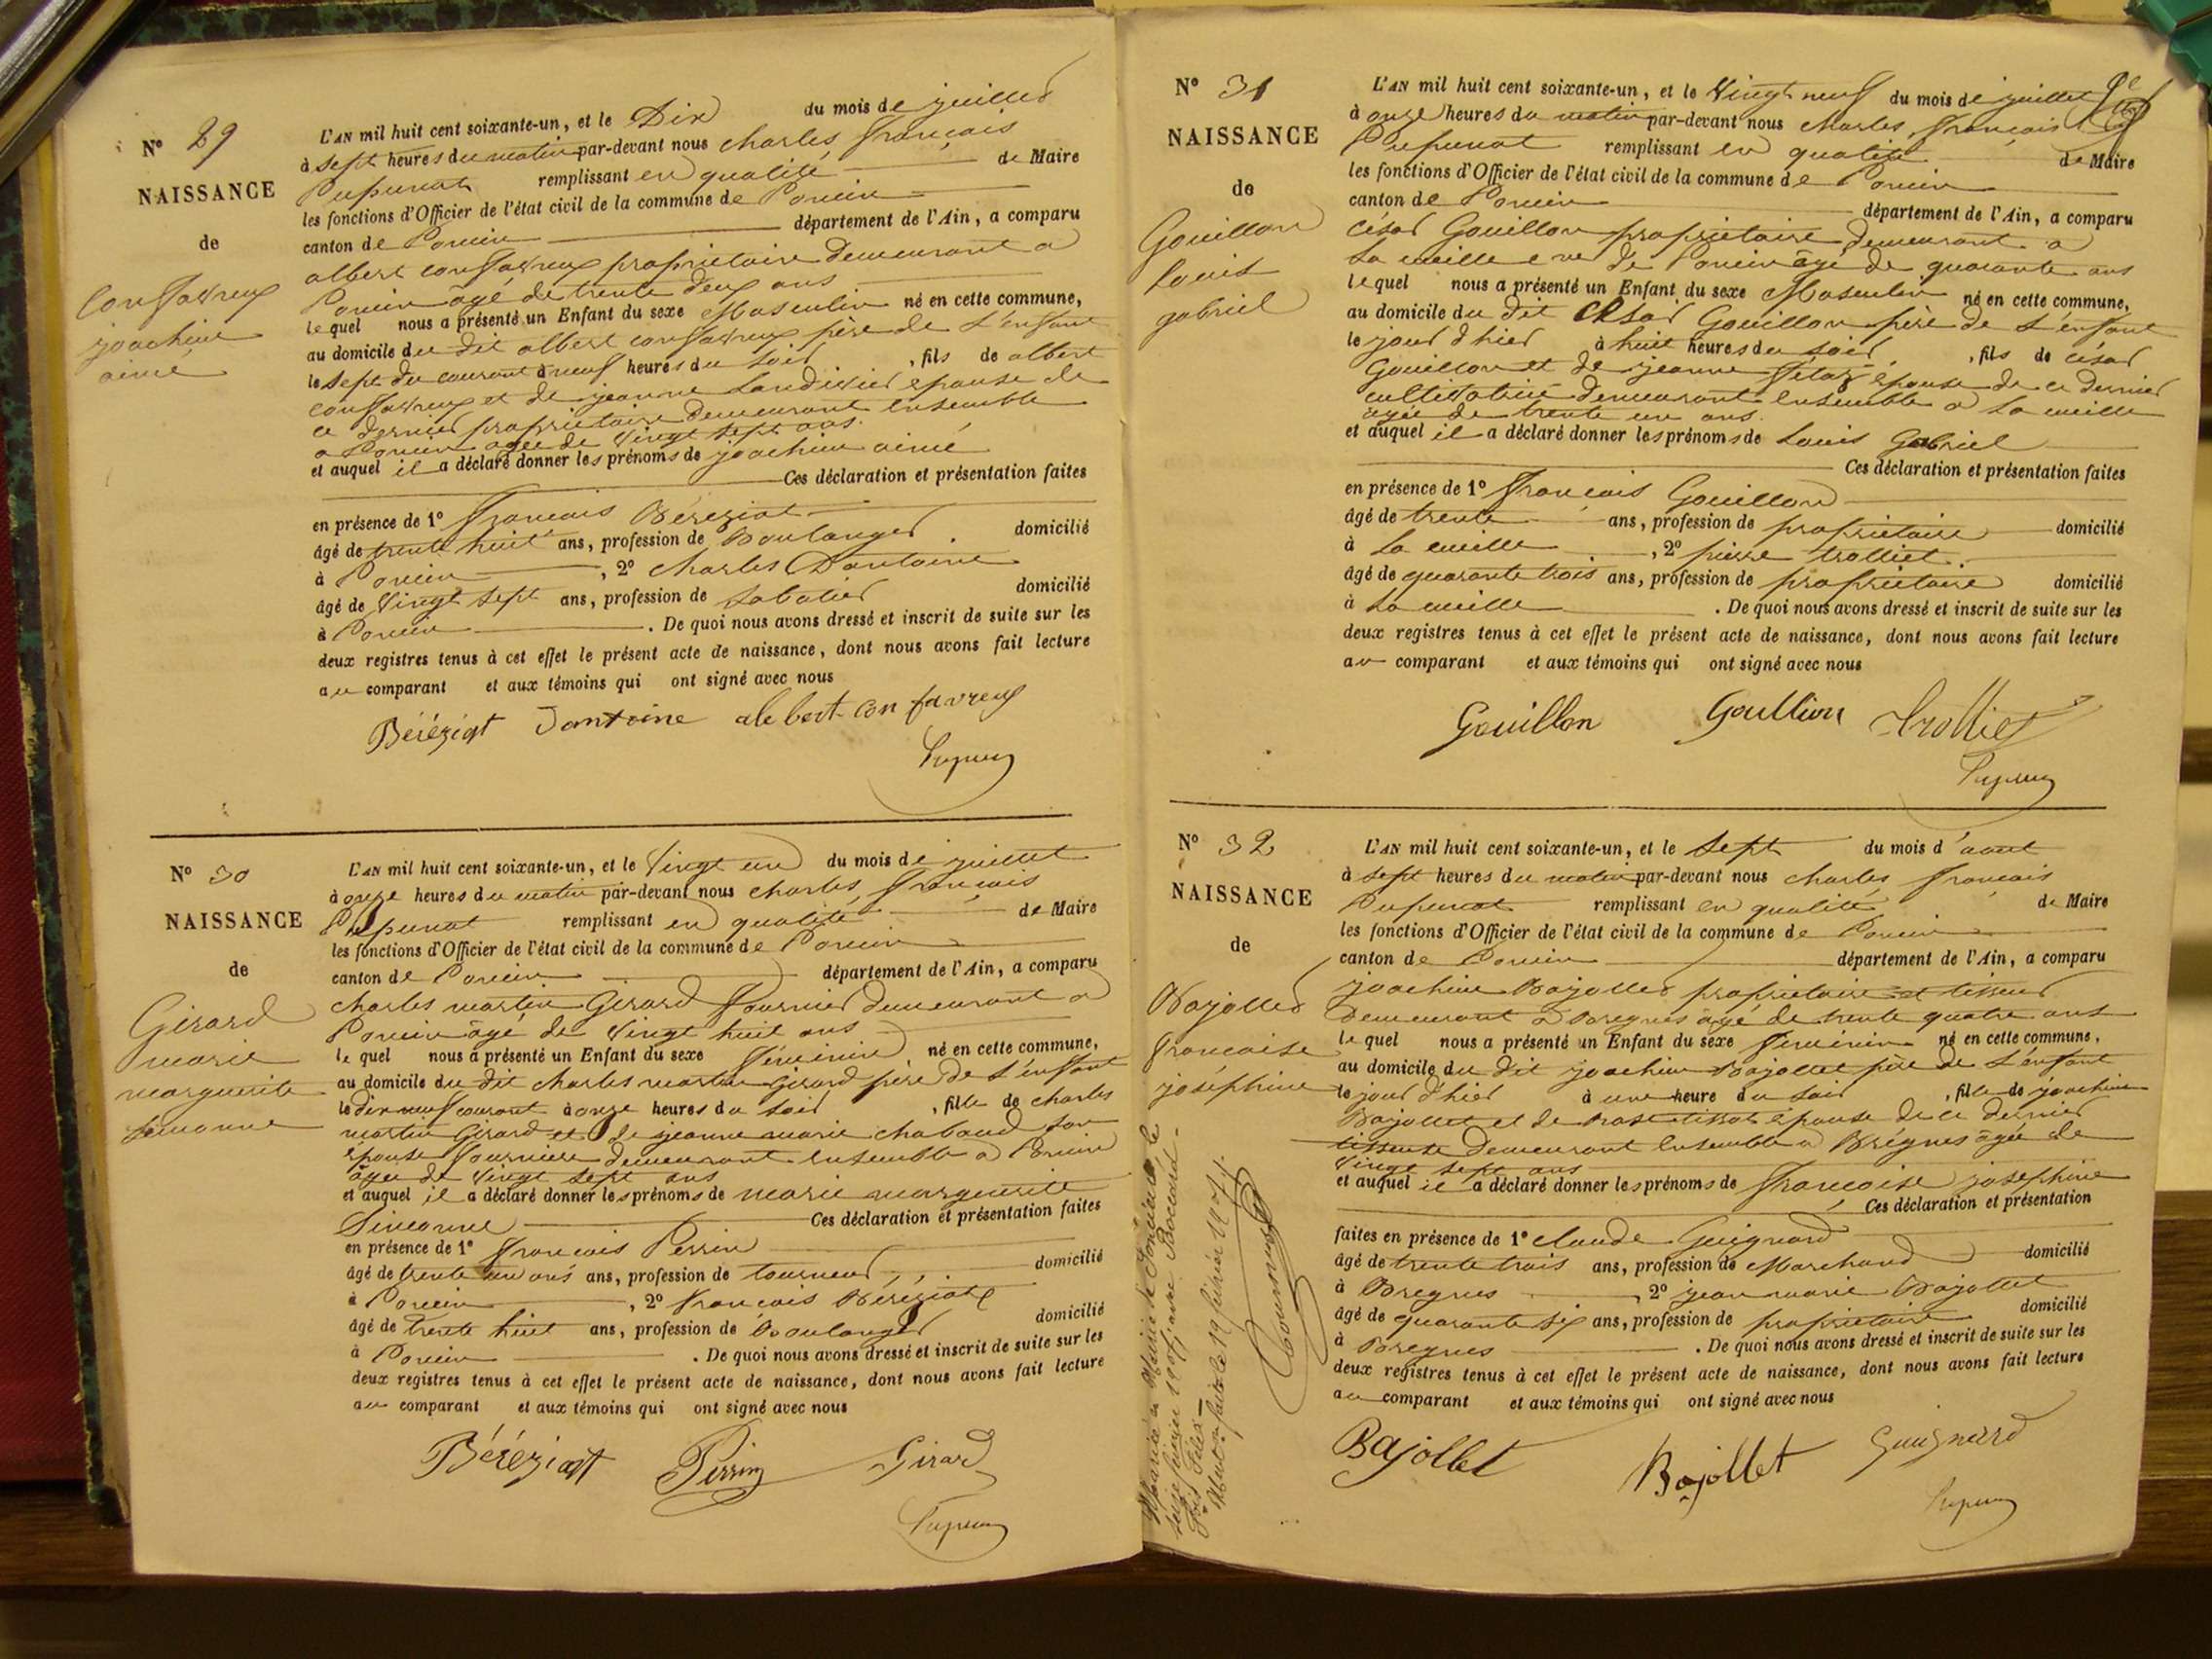 N° 29
NAISSANCE
de
Confavreux
joachim
aimé
L'AN mil huit cent soixante-un, et le Dix du mois de juillet
à sept heures du matin par-devant nous Charles François
Pupunat remplissant en qualité de Maire
les fonctions d'Officier de l'état civil de la commune de Poncin
canton de Poncin département de l'Ain, a comparu
albert confavreux propriétaire demeurant a
Poncin âgé de trente deux ans
lequel nous a présenté un Enfant du sexe Masculin né en cette commune,
au domicile du dit albert confavreux père de l'enfant
le sept du courant à neuf heures du soir, fils de albert
confavreux et de jeanne épouse de
ce dernier propriétaire demeurant ensemble
a Poncin agée de Vingt sept ans.
et auquel il a déclaré donner les prénoms de joachim aimé
Ces déclaration et présentation faites
en présence de 1° François Béréziat
âgé de trente huit ans, profession de Boulanger domicilié
à Poncin, 2° Charles Dantoine
âgé de Vingt sept ans, profession de Sabotier domicilié
à Poncin. De quoi nous avons dressé et inscrit de suite sur les
deux registres tenus à cet effet le présent acte de naissance, dont nous avons fait lecture
au comparant et aux témoins qui ont signé avec nous
Béréziat Dantoine albert confavreux
Pupunat
N° 30
NAISSANCE
de
Girard
marie
marguerite
simonne
L'AN mil huit cent soixante-un, et le Vingt un du mois de juillet
à onze heures du matin par-devant nous Charles François
Pupunat remplissant en qualité de Maire
les fonctions d'Officier de l'état civil de la commune de Poncin
canton de Poncin département de l'Ain, a comparu
Charles martin Girard Fournier demeurant a
Poncin âgé de Vingt huit ans
le quel nous a présenté un Enfant du sexe féminin né en cette commune,
au domicile du dit charles martin Girard père de l'enfant
le dix neuf courant à onze heures du soir, fille de Charles
martin Girard et de jeanne marie chabaud son
épouse Fournière demeurant ensemble a Poncin
âgée de Vingt sept ans
et auquel il a déclaré donner les prénoms de marie marguerite
Simonne Ces déclaration et présentation faites
en présence de 1° François Perrin
âgé de trente un ans ans, profession de tourneur domicilié
à Poncin, 2° François Béréziat
âgé de trente huit ans, profession de Boulanger domicilié
à Poncin. De quoi nous avons dressé et inscrit de suite sur les
deux registres tenus à cet effet le présent acte de naissance, dont nous avons fait lecture
au comparant et aux témoins qui ont signé avec nous
Béréziat Perrin Girard
Pupunat
N° 31
NAISSANCE
de
Gouillon
louis
gabriel
L'AN mil huit cent soixante-un, et le Vingt neuf du mois de juillet
à onze heures du matin par-devant nous Charles François
Pupunat remplissant en qualité de Maire
les fonctions d'Officier de l'état civil de la commune de Poncin
canton de Poncin département de l'Ain, a comparu
César Gouillon propriétaire demeurant a
la cueille de Poncin âgé de quarante ans
lequel nous a présenté un Enfant du sexe Masculin né en cette commune,
au domicile du dit César Gouillon père de l'enfant
le jour d'hier à huit heures du soir, fils de César
Gouillon et de jeanne épouse de ce dernier
cultivatrice demeurant ensemble a la cueille
agée de trente un ans.
et auquel il a déclaré donner les prénoms de Louis Gabriel
Ces déclaration et présentation faites
en présence de 1° François Gouillon
âgé de trente ans, profession de propriétaire domicilié
à la cueille, 2° pierre trolliet.
âgé de quarante trois ans, profession de propriétaire domicilié
à la cueille. De quoi nous avons dressé et inscrit de suite sur les
deux registres tenus à cet effet le présent acte de naissance, dont nous avons fait lecture
au comparant et aux témoins qui ont signé avec nous
Gouillon Goullion Trolliet
Pupunat
N° 32
NAISSANCE
de
Bajollet
Françoise
joséphine
L'AN mil huit cent soixante-un, et le Sept du mois d'aout
à sept heures du matin par-devant nous Charles François
Pupunat remplissant en qualité de Maire
les fonctions d'Officier de l'état civil de la commune de Poncin
canton de Poncin département de l'Ain, a comparu
joachim Bajollet propriétaire et tisseur
demeurant a Breignes âgé de trente quatre ans
le quel nous a présenté un Enfant du sexe féminin né en cette commune,
au domicile du dit joachim Bajollet père de l'enfant
le jour d'hier à une heure du soir, fille de joachim
Bajollet et de tissot épouse de ce dernier
tisseuse demeurant ensemble a Breignes âgée de
Vingt sept ans
et auquel il a déclaré donner les prénoms de Françoise joséphine
Ces déclaration et présentation
faites en présence de 1° claude Guignard
âgé de trente trois ans, profession de Marchand domicilié
à Breignes, 2° jean marie Bajollet
âgé de quarante six ans, profession de propriétaire domicilié
à Breignes. De quoi nous avons dressé et inscrit de suite sur les
deux registres tenus à cet effet le présent acte de naissance, dont nous avons fait lecture
au comparant et aux témoins qui ont signé avec nous
Bajollet Bajollet Guignard
Pupunat
Mariée à la Mairie de le
seize février 19 avec Boccard